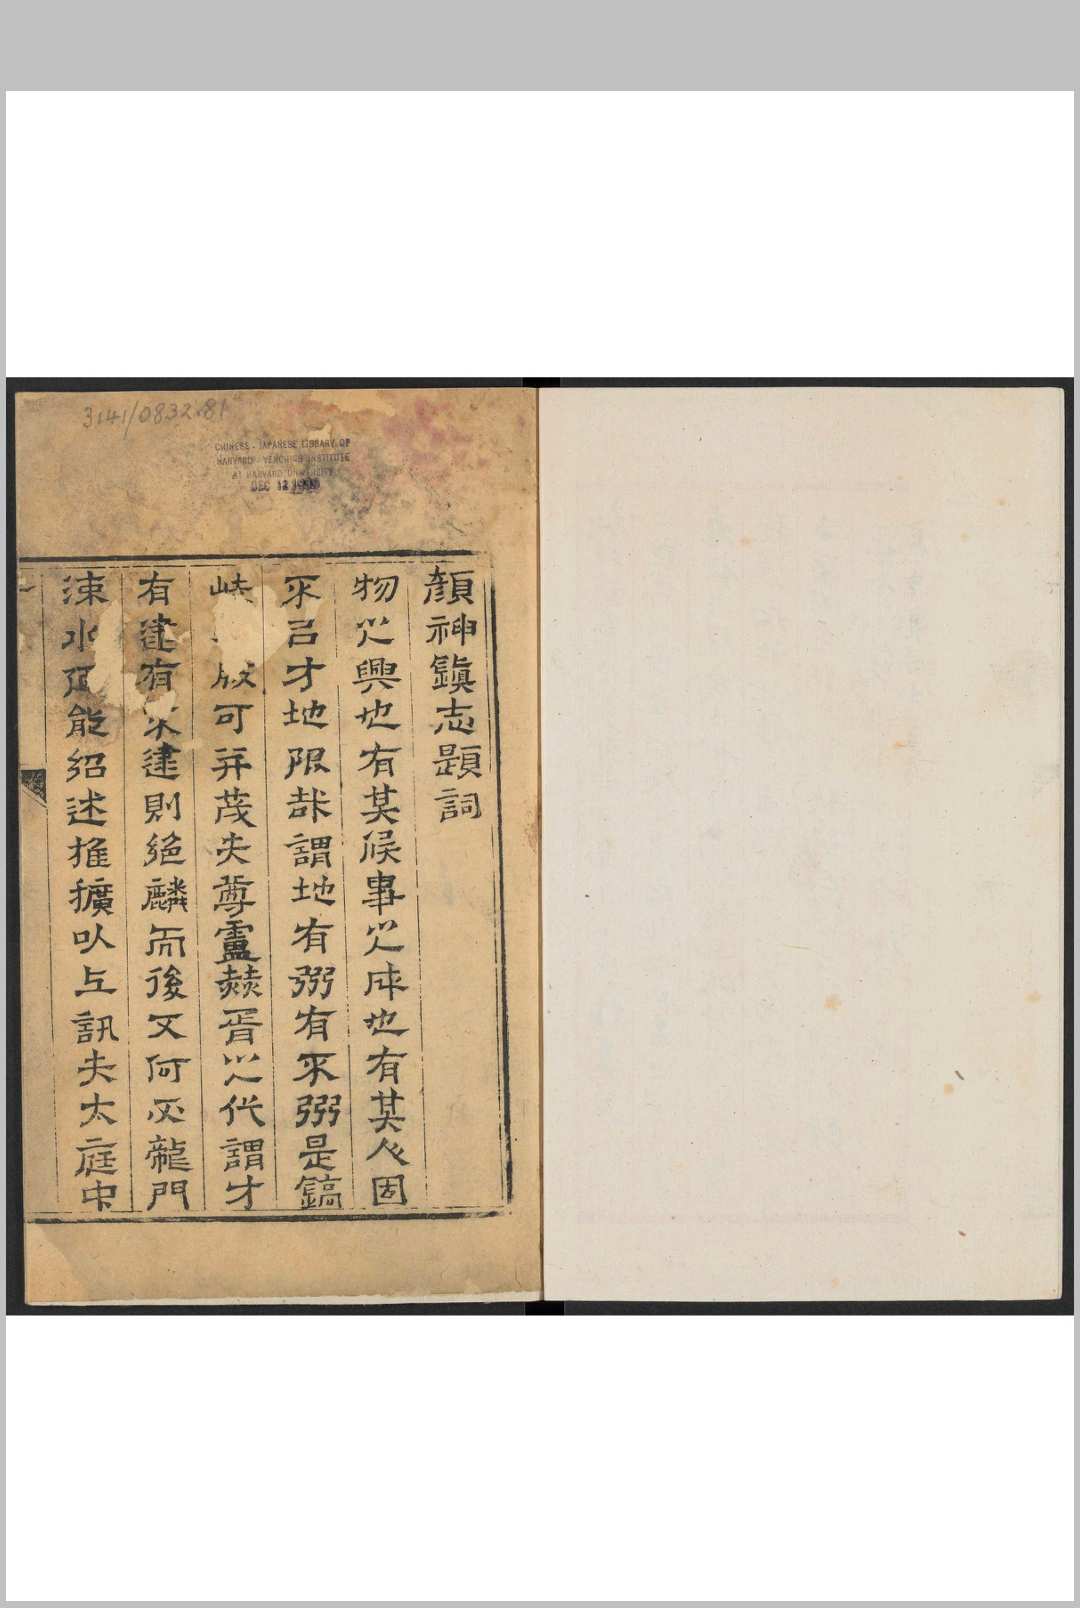 3141/0832.81
CHINESE - JAPANESE LIBRARY OF
HARVARD - YENCHING INSTITUTE
AT HARVARD UNIVERSITY
DEC 12
顏神鎭志題詞
物之興也有其候事之成也有其人固
不㠯才地限哉謂地有弼有不弼是鎬
可并茂夫尊盧赫胥之代謂才
有建有不建則絶麟而後又何必龍門
涑水能紹述推擴以上訊夫太庭中